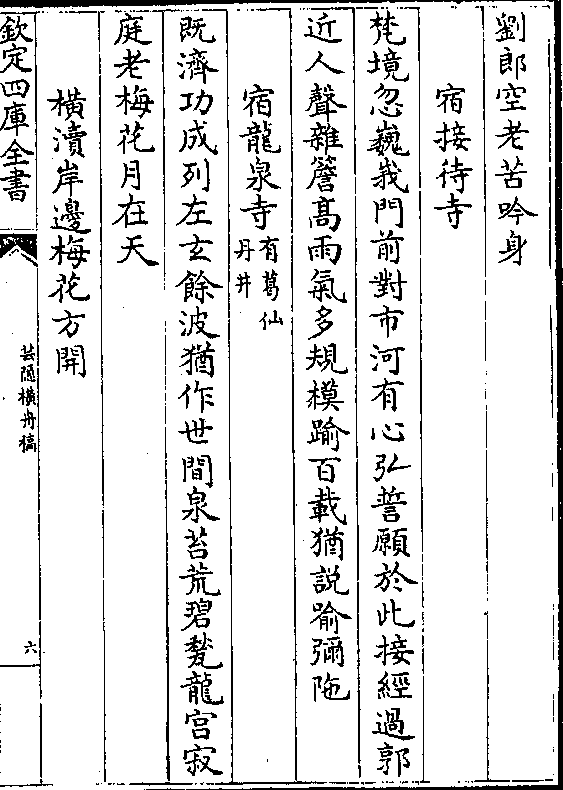 劉郎空老苦吟身
宿接待寺
梵境忽巍峩門前對市河有心弘誓願於此接經過郭
近人聲雜簷髙雨氣多規模踰百載猶説喻彌陁
宿龍泉寺有葛仙丹井
既濟功成列左玄餘波猶作世間泉苔荒碧甃龍宫寂
庭老梅花月在天
橫瀆岸邊梅花方開
欽定四庫全書
芸隱橫舟稿
六